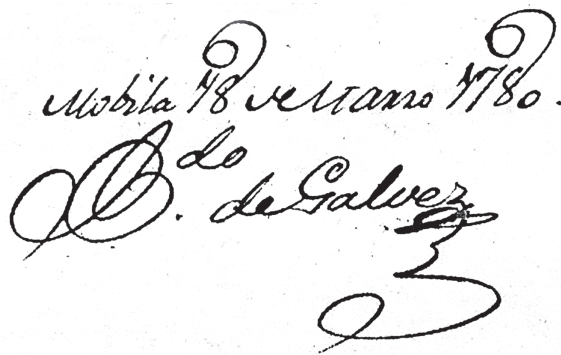 Mobila 18 de Marzo 1780.
B.do de Galvez